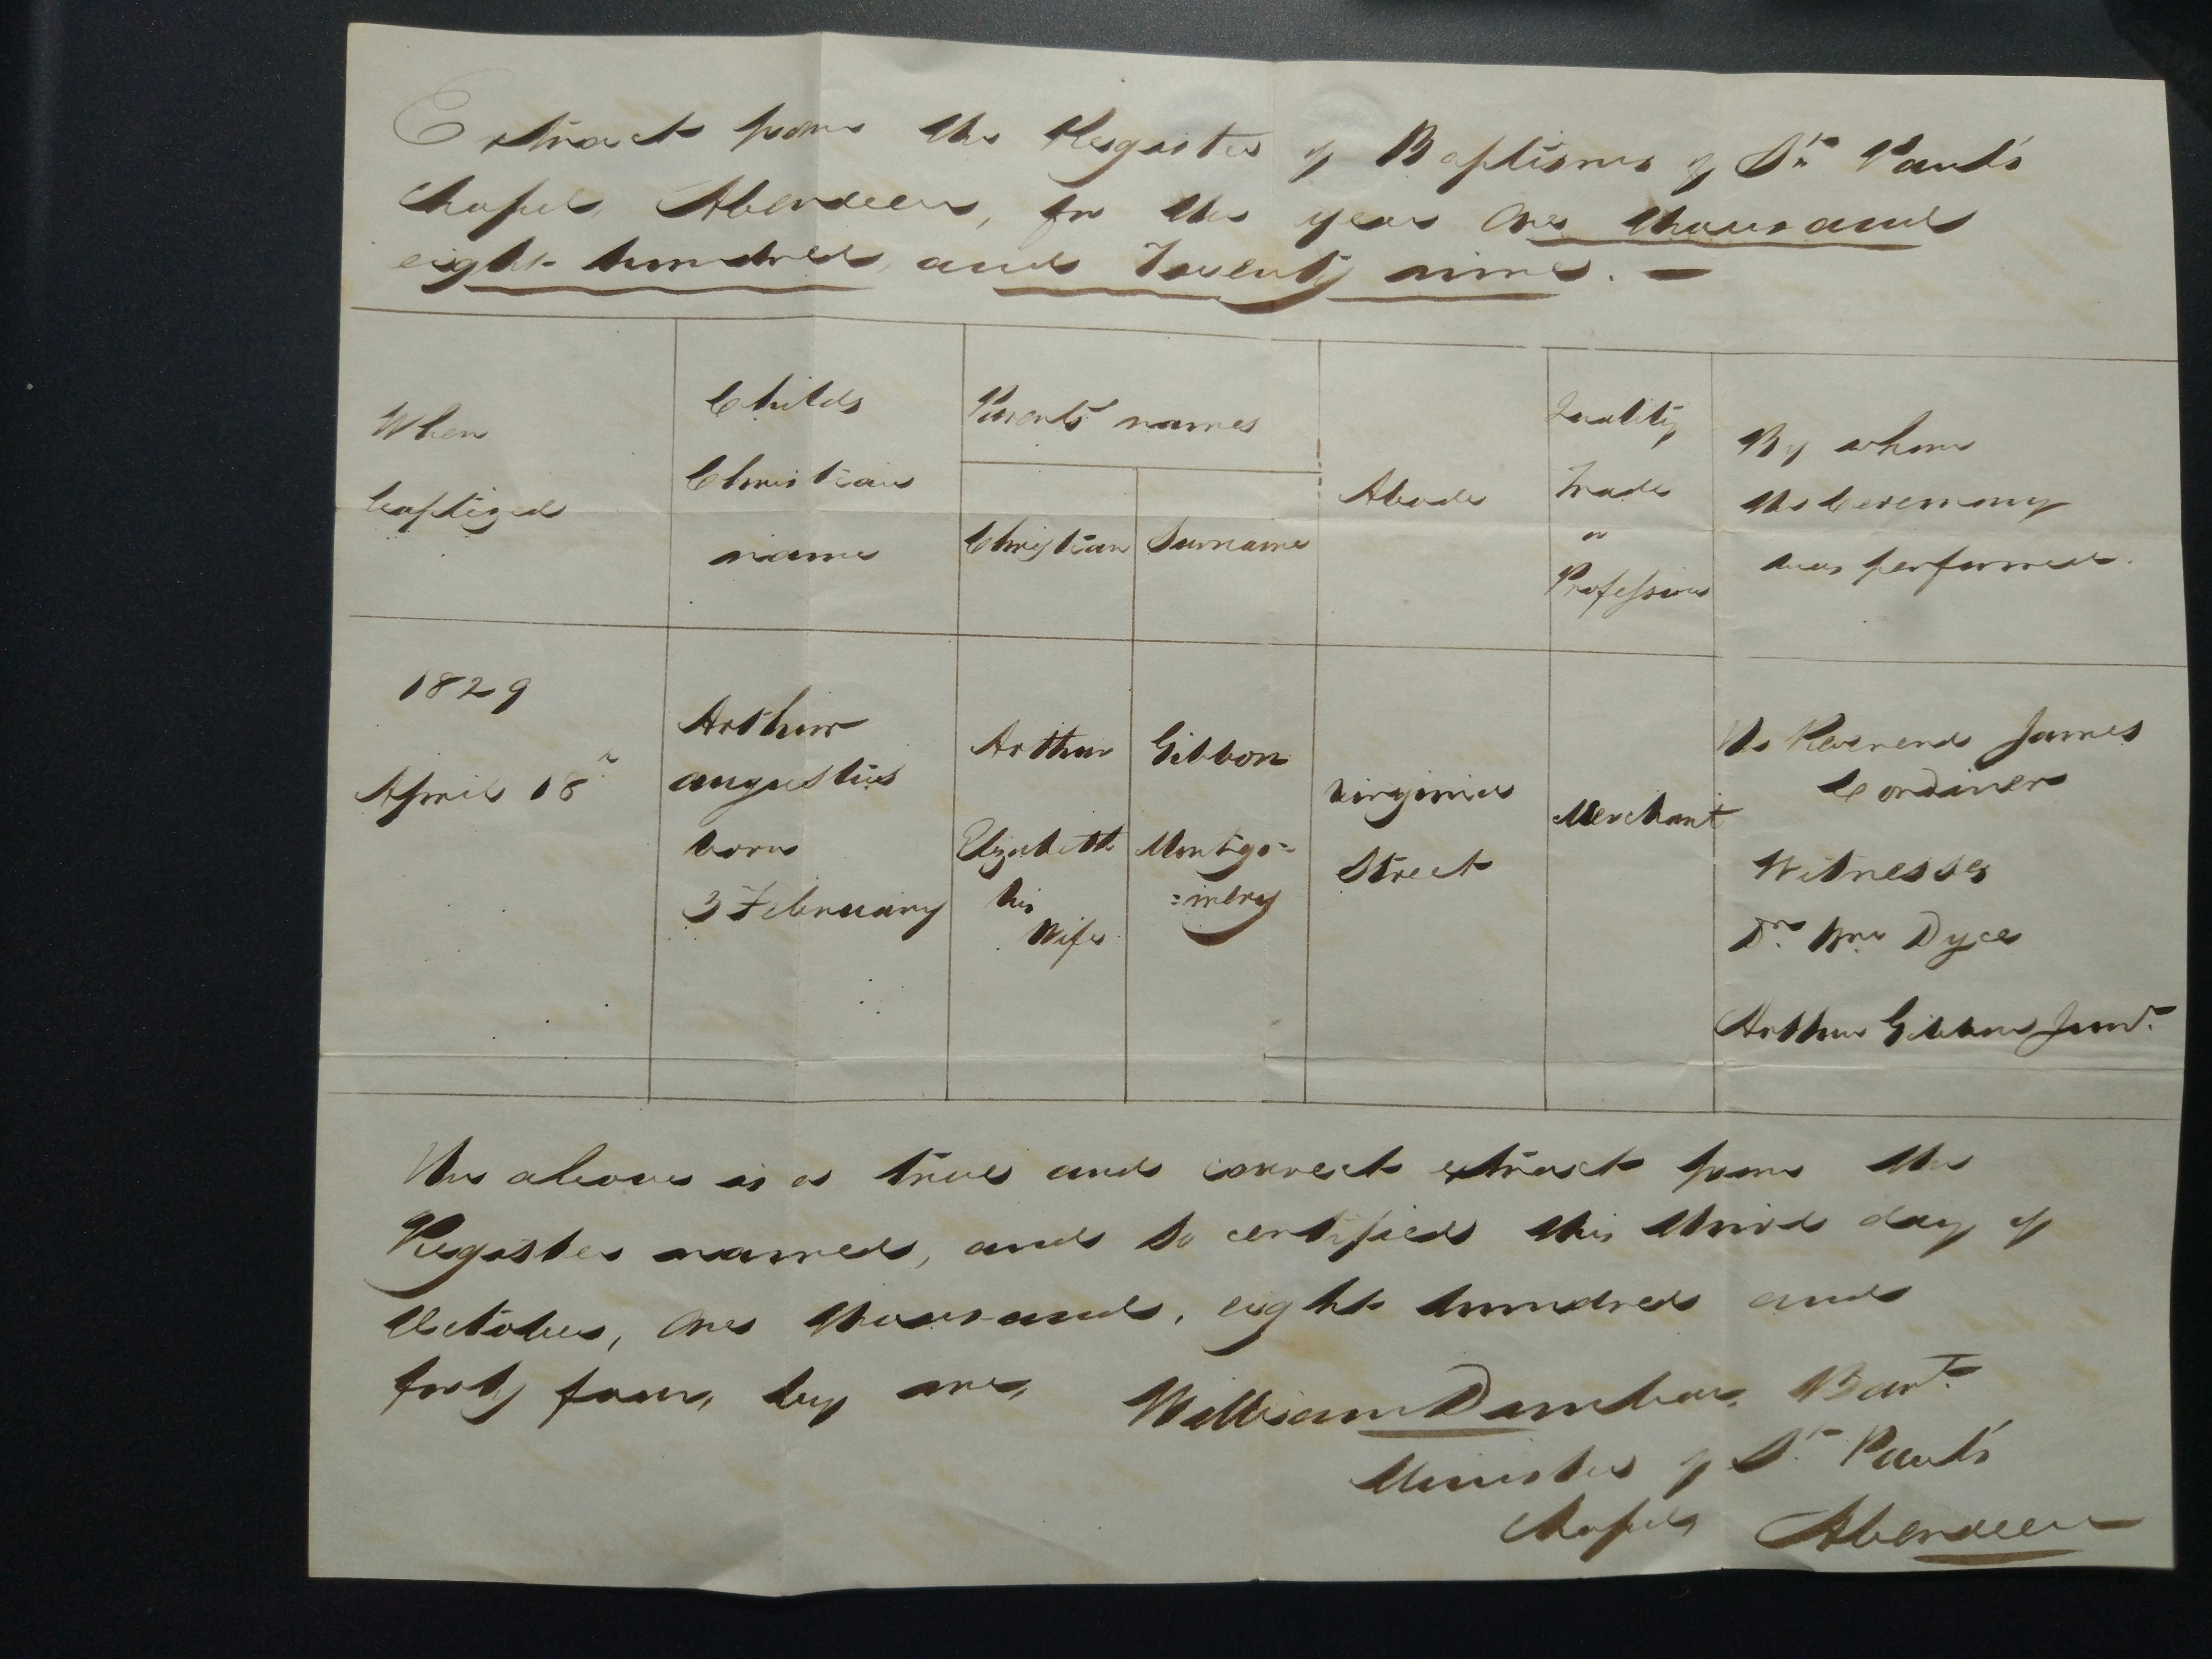 Extract from the Register of Baptisms of St. Paul's
Chapel, Aberdeen, for the year One thousand
eight hundred and Twenty nine. —
When
baptized
Childs
Christian
name
Parents' names
Christian
Surname
Abode
Quality
Trade
or
Profession
By whom
the Ceremony
was performed.
1829
April 18th
Arthur
augustus
born
3 February
Arthur
Elizabeth
his
Wife
Gibbon
Montgo=
=mery
Virginia
Street
Merchant
The Reverend James
Cordiner
Witnesses
Dr. Wm Dyce
Arthur Gibbon Junr.
The above is a true and correct extract from the
Register named, and so certified this third day of
October, One thousand, eight hundred and
forty four, by me,
William Dunbar, Bart.
Minister of St. Paul's
Chapel, Aberdeen